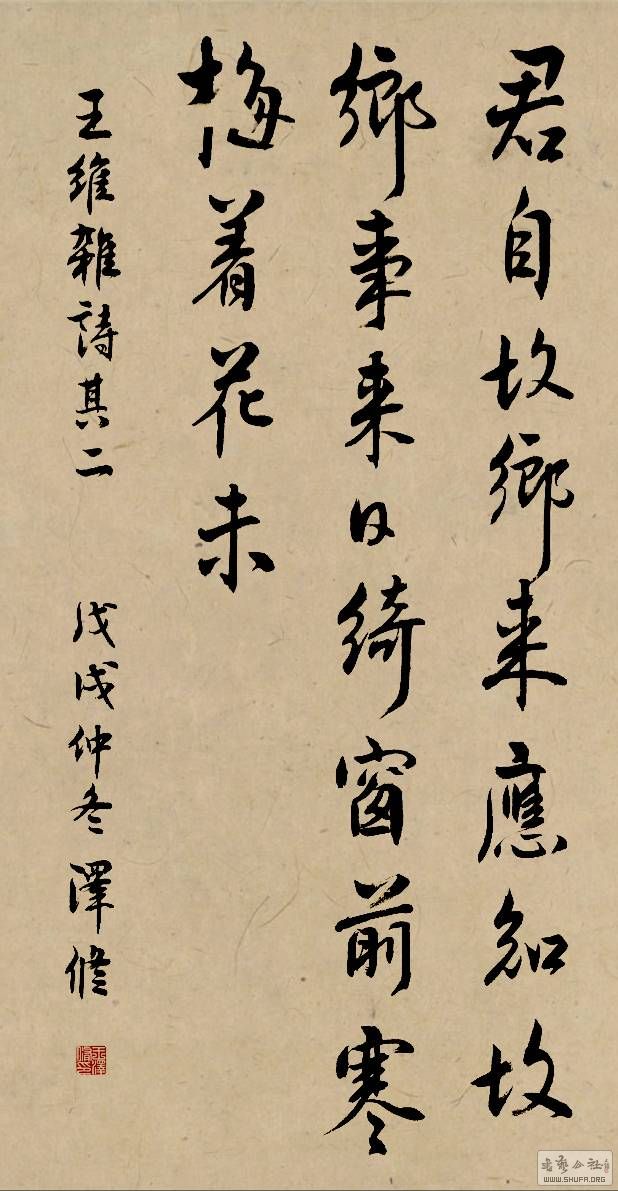 君自故鄉来應知故
鄉事来日綺窗前寒
梅着花未
王維雜詩其二 戊戌仲冬 澤修
WWW.SHUFA.ORG